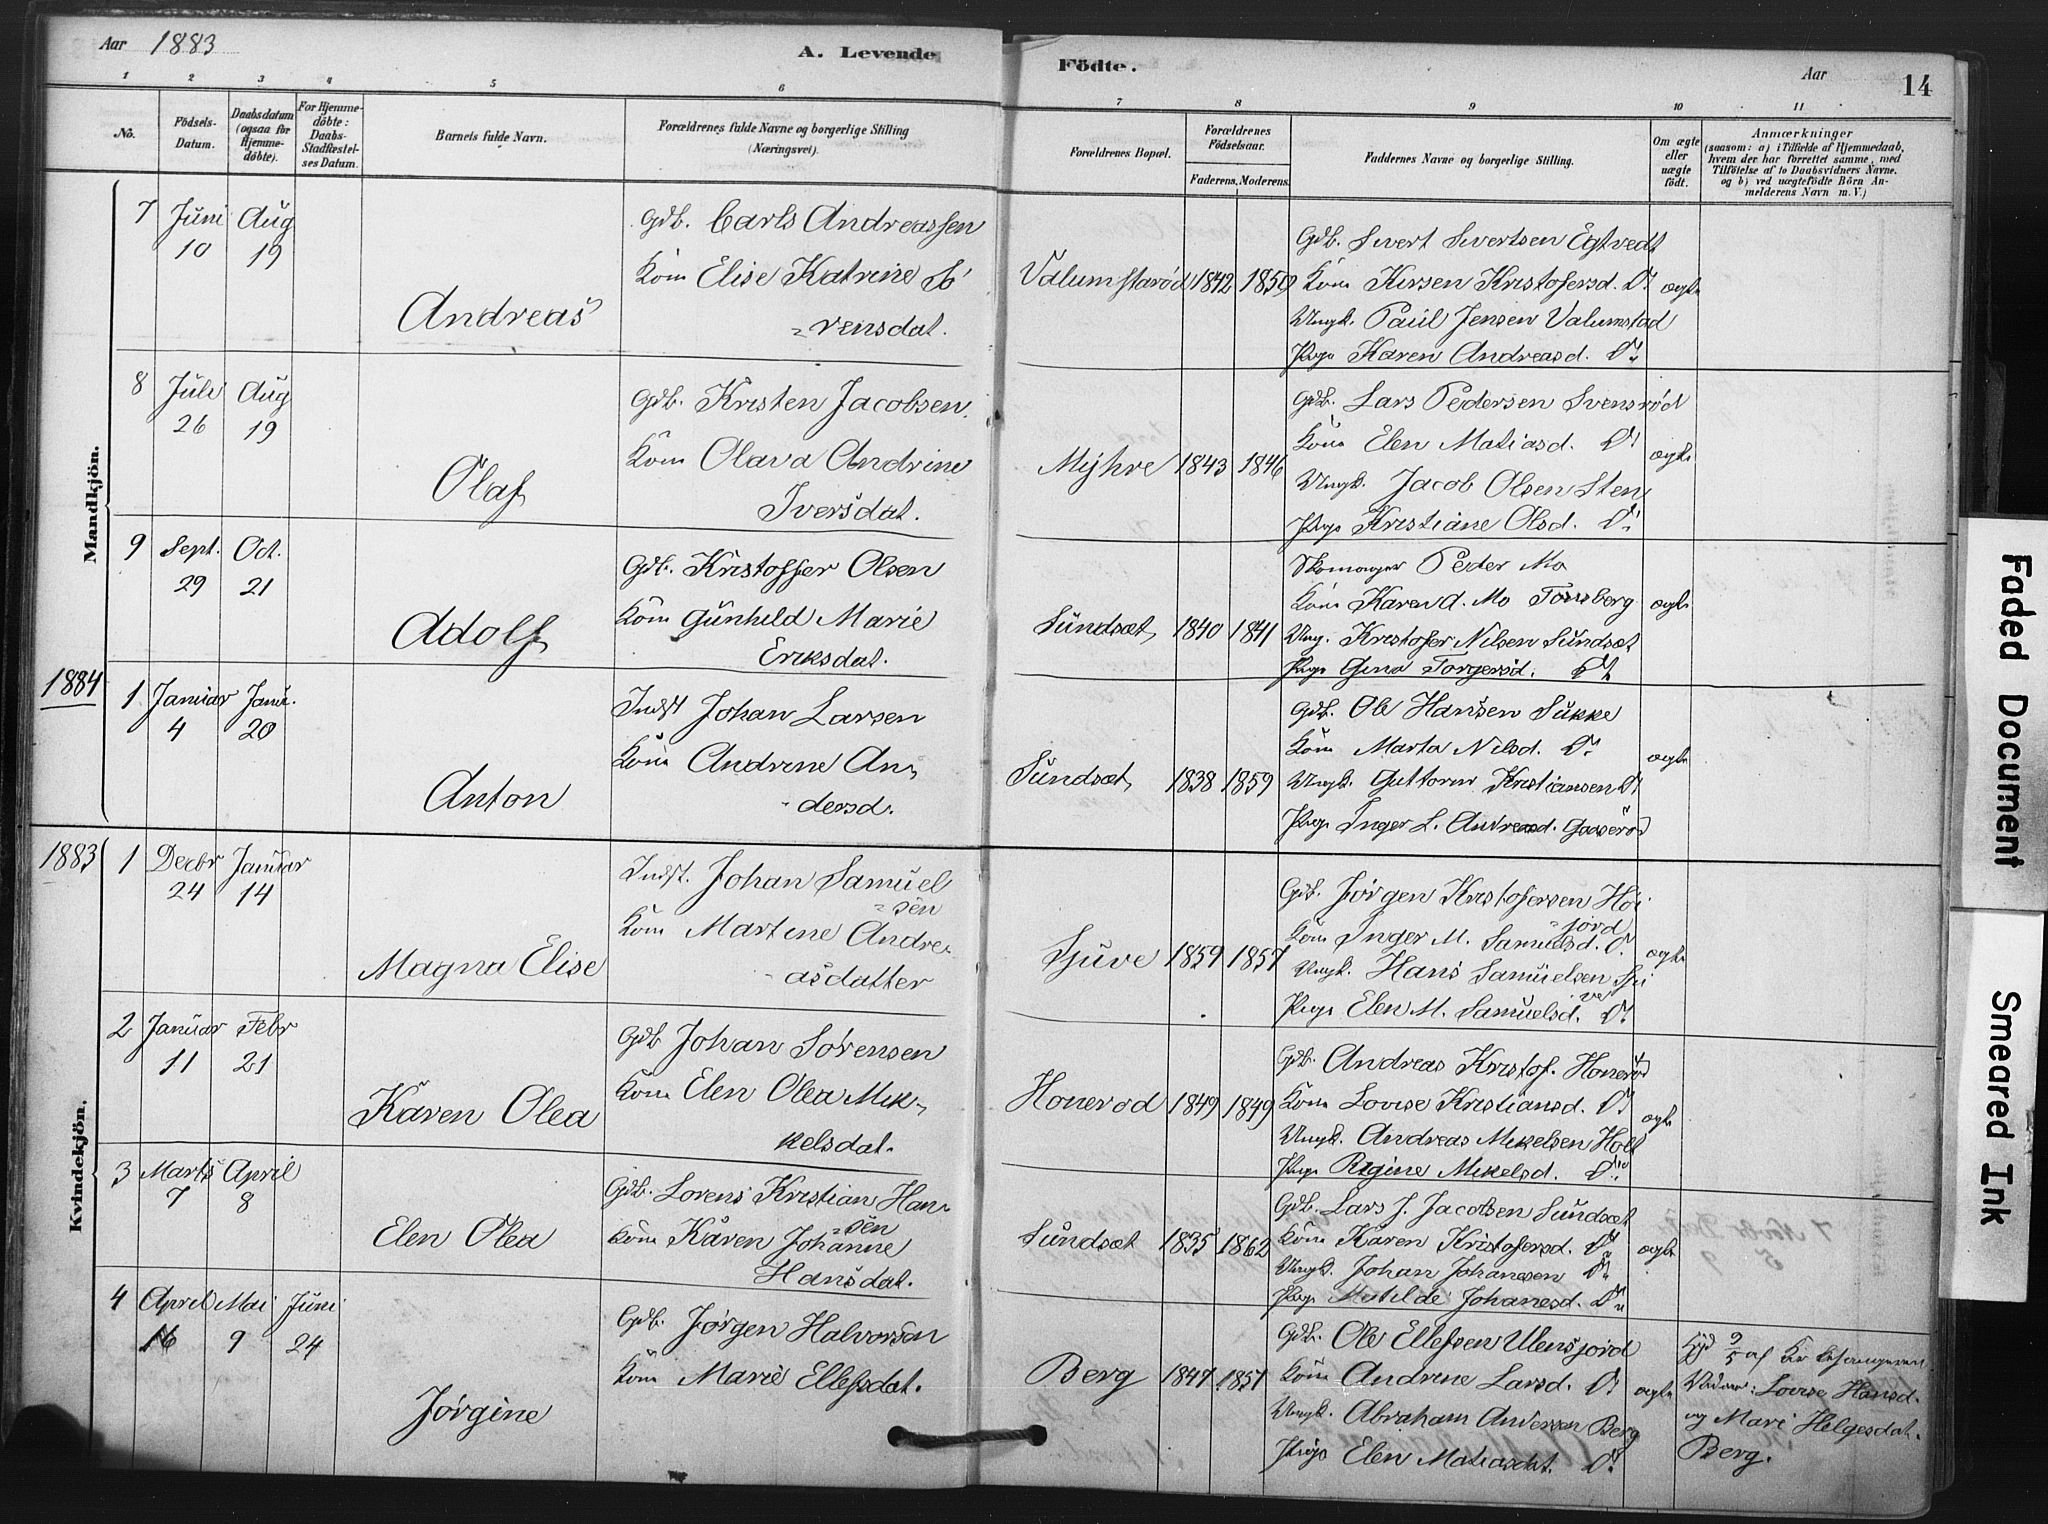 Aar 1883
A. Levende
Födte.
Aar
14
1 2 3 4 5 6 7 8 9 10 11
No.
Födsels-
Datum.
Daabsdatum
(ogsaa for
Hjemme-
döbte).
For Hjemme-
döbte:
Daabs-
Stadfæstel-
ses Datum.
Barnets fulde Navn.
Forældrenes fulde Navne og borgerlige Stilling
(Næringsvei).
Forældrenes Bopæl.
Forældrenes
Födselsaar.
Faderens. Moderens.
Faddernes Navne og borgerlige Stilling.
Om ægte
eller
uægte
födt.
Anmærkninger
(saasom: a) i Tilfælde af Hjemmedaab,
hvem der har forrettet samme, med
Tilföielse af to Daabsvidners Navne.
og b) ved uægtefödte Börn An-
melderens Navn m. V.)
Mandkjön.
7 Juni Aug
10 19
Andreas
Gdb. Carls Andreassen
Kom Elise Katrine Sö
=rensdat.
Valumstarød 1842 1850
Gdb. Sivert Sivertsen Egtvedt
Kom Kirsen Kristofersd. Do
Ungk. Paul Jensen Valumstad
Pige Karen Andreasd. Do
ægte
8 Juli Aug
26 19
Olaf
Gdb. Kristen Jacobsen
Kom Olava Andrine
Iversdat.
Myhre 1843 1846
Gdb. Lars Pedersen Svensrød
Kom Elen Matiasd. Do
Ungk. Jacob Olsen Sten
Pige Kristiane Olsd. Do
ægte
9 Sept. Oct.
29 21
Adolf
Gdb. Kristoffer Olsen
Kom Gunhild Marie
Eriksdat.
Sundsæt 1840 1841
Skomager Peder Mo
Kom Karen d. Mo Tönsberg
Ung. Kristofer Nilsen Sundsæt
Pige Gina Torgersd. Do
ægte
1884
1 Januar Janu.
4 20
Anton
Indst Johan Larsen
Kom Andrine An=
=dersd.
Sundsæt 1838 1859
Gdb. Ole Hansen Sukke
Kom Marta Nilsd. Do
Ungk. Guttorm Kristiansen Do
Pige Inger L. Andreasd. Gaaserød
ægte
1883
Kvindekjön.
1 Decbr Januar
24 14
Magna Elise
Indst. Johan Samuel
=sen
Kom Martine Andre=
=asdatter
Sjuve 1859 1857
Gdb. Jørgen Kristofersen Høi
=jord
Kom Inger M. Samuelsd. Do
Ungk. Hans Samuelsen Sju
ve
Pige Elen M. Samuelsd. Do
ægte
2 Januar Febr
11 21
Karen Olea
Gdb Johan Sørensen
Kom Elen Olea Mik=
kelsdat.
Honerød 1849 1849
Gdb. Andreas Kristof. Honerød
Kom Lovise Kristiansd. Do
Ungk. Andreas Mikelsen Holt
Pige Regine Mikelsd. Do
ægte
3 Marts April
7 8
Elen Olea
Gdb. Lorens Kristian Han=
=sen
Kom Karen Johanne
Hansdat.
Sundsæt 1835 1862
Gdb. Lars J. Jacobsen Sundsæt
Kom Karen Kristofersd. Do
Ungk. Johan Johanesen Do
Pige Matilde Johanesd. Do
ægte
4 April Mai Juni
16 9 24
Jørgine
Gdb. Jørgen Halvorsen
Kom Marie Ellefsdat.
Berg 1847 1857
Gdb. Ole Ellefsen Ulensjord
Kom Andrine Larsd. Do
Ungk. Abraham Andersen Berg
Pige Elen Matiasdat. Do
ægte
Hjd 9/5 af Kir
Vidner: Lovise Hansd.
og Mari Helgesdat.
Berg.
Faded Document
Smeared Ink